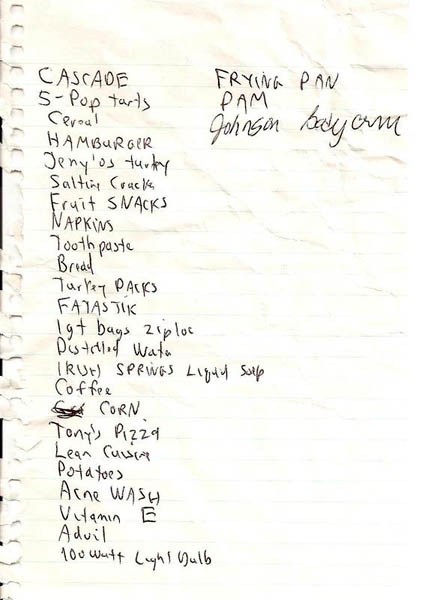 CASCADE
5-Pop tarts
Cereal
HAMBURGER
Jeny'os turky
Saltine Cracks
Fruit SNACKS
NAPKINS
Toothpaste
Bread
Turkey PACKS
FATASTIK
1qt bags ziploc
Distilled Wata
IRISH SPRINGS Liquid Soap
Coffee
CORN
Tony's Pizza
Lean Cuisine
Potatoes
Acne WASH
Vitamin E
Advil
100watt Light Bulb
FRYING PAN
PAM
Johnson body